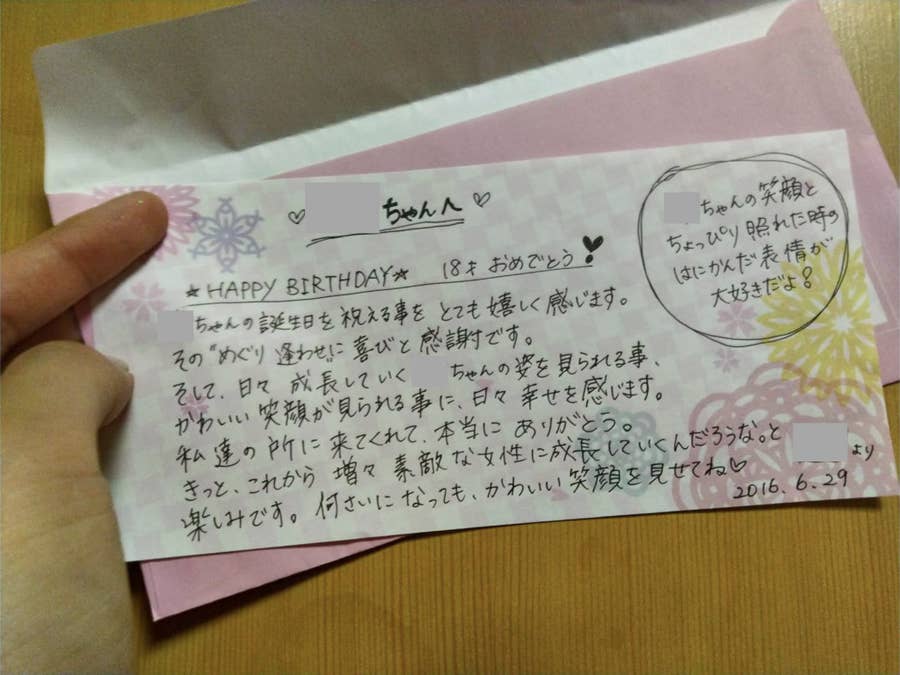 ♡ ちゃんへ ♡
★HAPPY BIRTHDAY★ 18才 おめでとう❣
ちゃんの誕生日を祝える事を とても嬉しく感じます。
その"めぐり逢わせ"に喜びと感謝です。
そして、日々 成長していく ちゃんの姿を見られる事、
かわいい笑顔が見られる事に、日々 幸せを感じます。
私達の所に来てくれて、本当に ありがとう。
きっと、これから 増々 素敵な女性に成長していくんだろうな。と
楽しみです。何さいになっても、かわいい笑顔を見せてね♡
ちゃんの笑顔と
ちょっぴり 照れた時の
はにかんだ表情が
大好きだよ!
より
2016.6.29